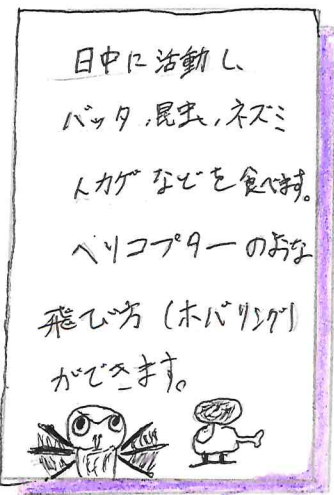 日中に活動し、
バッタ、昆虫、ネズミ
トカゲなどを食べます。
ヘリコプターのような
飛び方（ホバリング）
ができます。